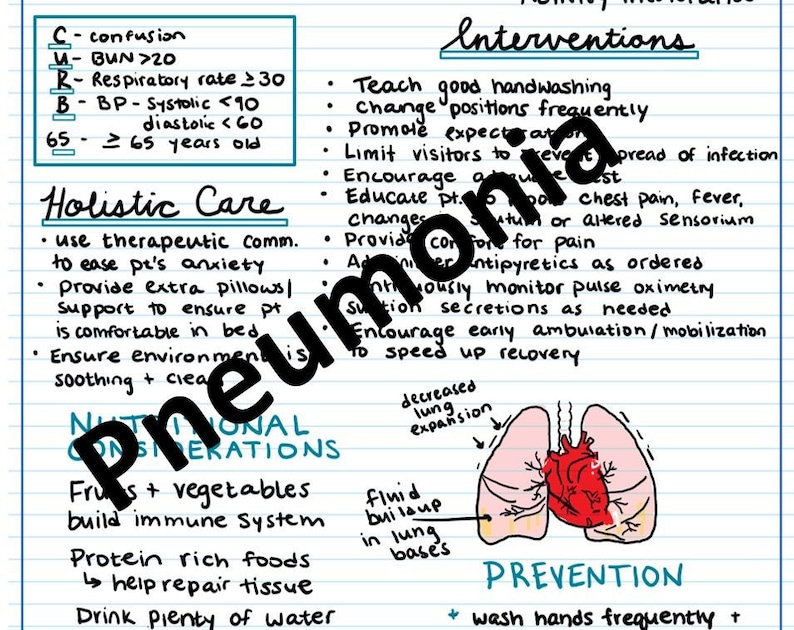 C - confusion
U - BUN >20
R - Respiratory rate ≥ 30
B - BP - Systolic < 90
diastolic < 60
65 - ≥ 65 years old
Interventions
• Teach good handwashing
• Change positions frequently
• Promote
• Limit visitors to spread of infection
• Encourage
• Educate pt. chest pain, fever,
changes or altered sensorium
• Provide for pain
• antipyretics as ordered
monitor pulse oximetry
secretions as needed
• Encourage early ambulation / mobilization
to speed up recovery
Holistic Care
• use therapeutic comm.
to ease pt's anxiety
• Provide extra pillows/
support to ensure pt
is comfortable in bed
• Ensure environment is
soothing + clean
Pneumonia
NUTRITIONAL
CONSIDERATIONS
Fruits + vegetables
build immune system
Protein rich foods
↳ help repair tissue
Drink plenty of water
decreased
lung
expansion
fluid
buildup
in lung
bases
PREVENTION
+ wash hands frequently +